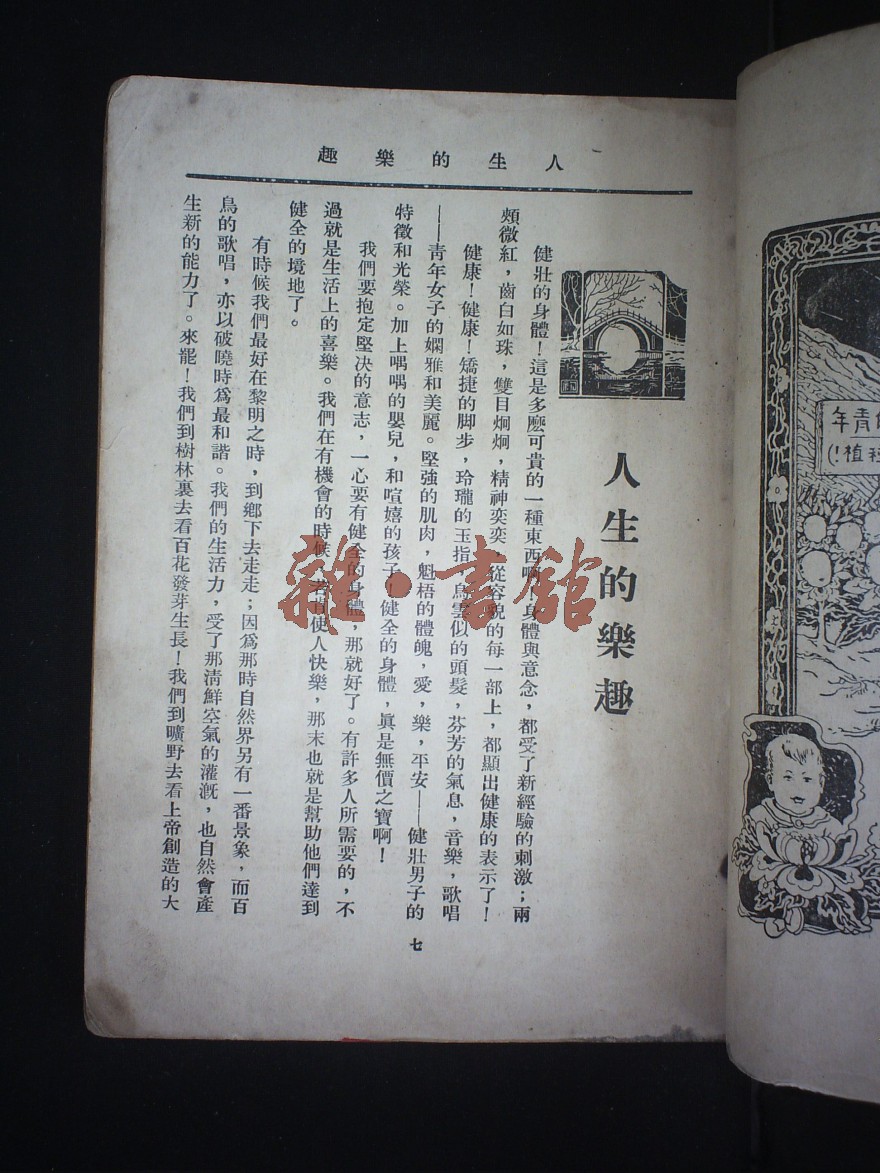 人生的樂趣
人生的樂趣
健壯的身體！這是多麽可貴的一種東西啊！身體與意念，都受了新經驗的刺激；兩
頰微紅，齒白如珠，雙目炯炯，精神奕奕，從容貌的每一部上，都顯出健康的表示了！
健康！健康！矯捷的脚步，玲瓏的玉指，烏雲似的頭髮，芬芳的氣息，音樂，歌唱
——青年女子的嫻雅和美麗。堅強的肌肉，魁梧的體魄，愛，樂，平安——健壯男子的
特徵和光榮。加上喁喁的嬰兒，和喧嬉的孩子！健全的身體，眞是無價之寶啊！
我們要抱定堅決的意志，一心要有健全的身體，那就好了。有許多人所需要的，不
過就是生活上的喜樂。我們在有機會的時候，若肯使人快樂，那末也就是幫助他們達到
健全的境地了。
有時候我們最好在黎明之時，到鄉下去走走；因爲那時自然界另有一番景象，而百
鳥的歌唱，亦以破曉時爲最和諧。我們的生活力，受了那清鮮空氣的灌漑，也自然會產
生新的能力了。來罷！我們到樹林裏去看百花發芽生長！我們到曠野去看上帝創造的大
七
青年
植！)
雜·書館